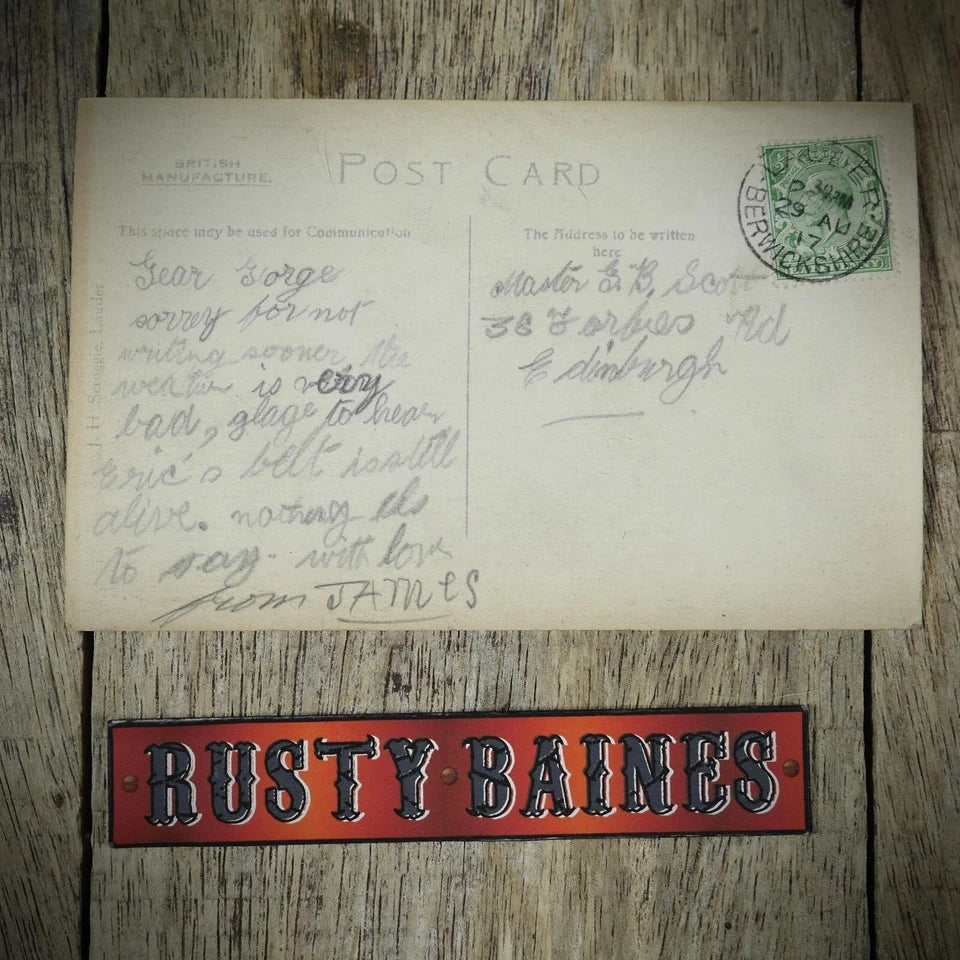 BRITISH
MANUFACTURE.
POST CARD
This space may be used for Communication
The Address to be written
here
J. H Scroggie, Lauder
Dear Gorge
sorrey for not
writing sooner the
weather is very
bad, glage to hear
Eric's belt isstill
alive. nothing els
to say. with love
from JAMES
Master G. B. Scott
36 Forbes Rd
Edinburgh
LAUDER
29 AU
17
BERWICKSHIRE
RUSTY BAINES